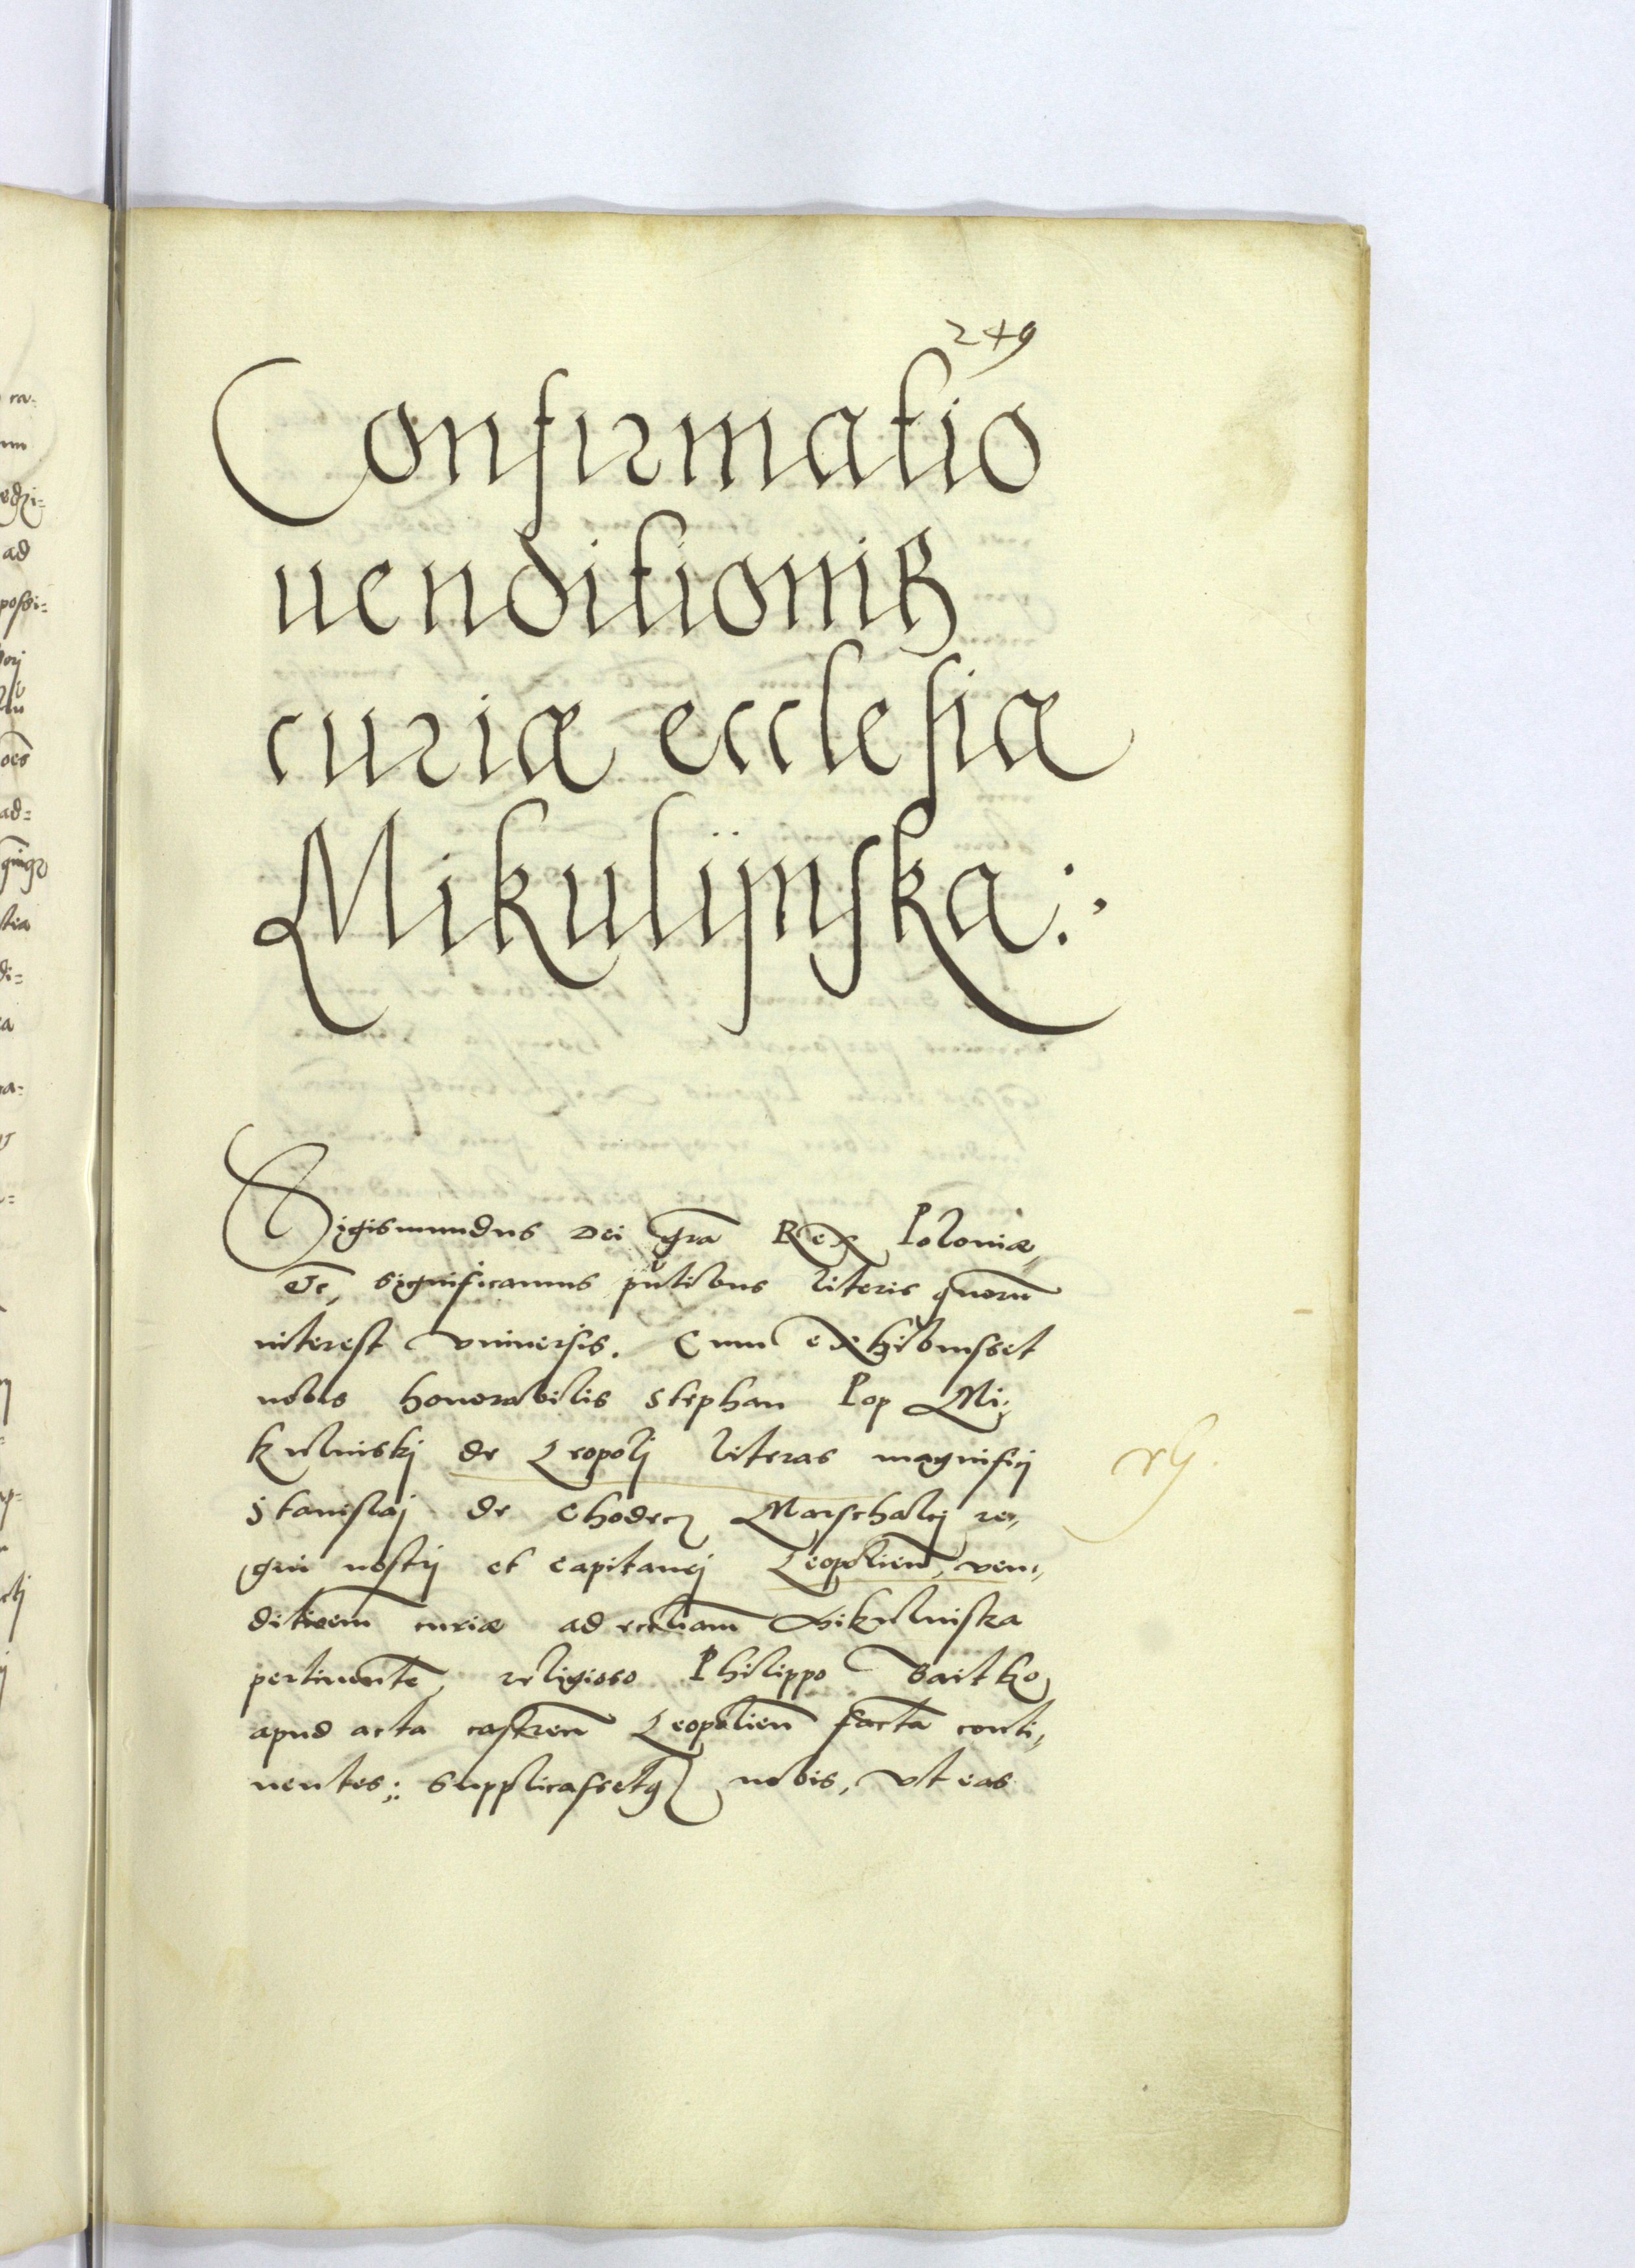 249
Confirmatio
uenditionis
curiæ ecclesiæ
Mikulijnska:,
Sigismundus Dei gra͞ Rex Poloniæ,
etc͞, significamus pn͞tibus literis quoru͞
interest vniuersis. Cum exhibuisset
nobis honorabilis Stephan Pop Mi,
kulinskij de Leopolj literas magnificj
Stanislaj de Chodecz Marschalcj re,
gni nostrj et capitanej Leopolien͞, ven,
ditioem͞ curiæ ad eccl͞iam Mikulinska
pertinente͞, religioso Philippo Baitko,
apud acta castren͞ Leopolien͞ facta͞ conti,
nentes: supplicassetq nobis, vt eas
ra:
um
edzi:
ad
possi:
ad:
di: